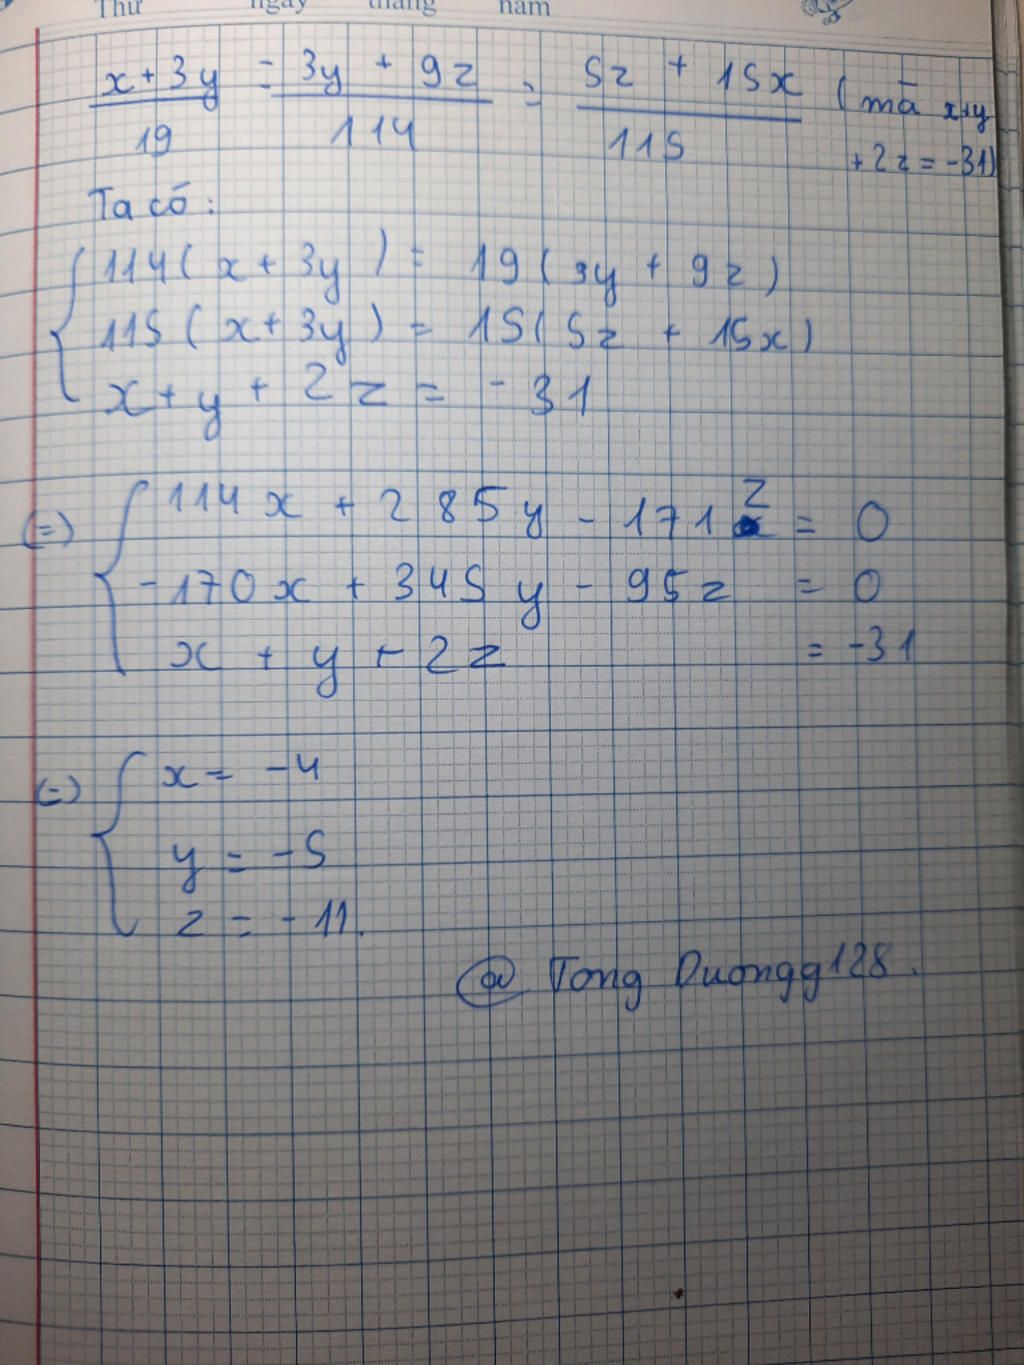 Thứ ngày tháng năm
x + 3y / 19 = 3y + 9z / 114 = 5z + 15x / 115 (mà x+y + 2z = -31)
Ta có:
{ 114( x + 3y ) = 19( 3y + 9z )
115( x + 3y ) = 15( 5z + 15x )
x + y + 2z = -31
(=) { 114x + 285y - 171z = 0
-170x + 345y - 95z = 0
x + y + 2z = -31
(=) { x = -4
y = -5
z = -11.
@ Tong Duongg128.